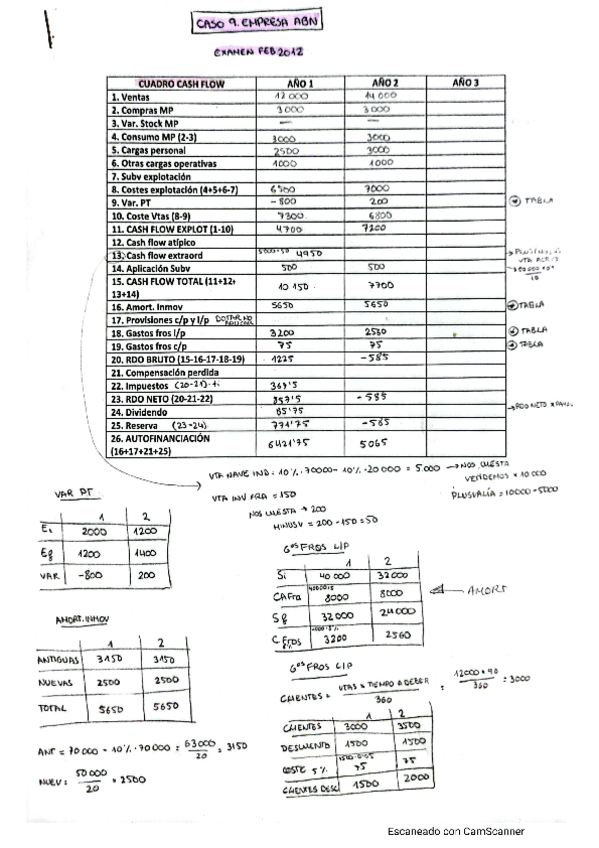 CASO 9. EMPRESA ABN
EXAMEN FEB 2012
CUADRO CASH FLOW AÑO 1 AÑO 2 AÑO 3
1. Ventas 12 000 14 000
2. Compras MP 3000 3000
3. Var. Stock MP — —
4. Consumo MP (2-3) 3000 3000
5. Cargas personal 2500 3000
6. Otras cargas operativas 1000 1000
7. Subv explotación
8. Costes explotación (4+5+6-7) 6500 7000
9. Var. PT -800 200 → TABLA
10. Coste Vtas (8-9) 7300 6800
11. CASH FLOW EXPLOT (1-10) 4700 7200
12. Cash flow atípico
13. Cash flow extraord 5000-50 4950
14. Aplicación Subv 500 500
15. CASH FLOW TOTAL (11+12+13+14) 10 150 7700
16. Amort. Inmov 5650 5650 → TABLA
17. Provisiones c/p y l/p
18. Gastos fros l/p 3200 2560 → TABLA
19. Gastos fros c/p 75 75 → TABLA
20. RDO BRUTO (15-16-17-18-19) 1225 -585
21. Compensación perdida
22. Impuestos (20-21)·ti 367'5
23. RDO NETO (20-21-22) 857'5 -585
24. Dividendo 85'75 → RDO NETO x
25. Reserva (23-24) 771'75 -585
26. AUTOFINANCIACIÓN (16+17+21+25) 6421'75 5065
VTA NAVE IND: 10%·70000 - 10%·20000 = 5000 → NOS CUESTA
VENDEMOS x 10000
PLUSVALÍA = 10000-5000
VTA INV FRA = 150
NOS CUESTA → 200
MINUSV = 200-150 = 50
VAR PT
1 2
Ei 2000 1200
Ef 1200 1400
VAR -800 200
GTOS FROS L/P
1 2
Si 40 000 32000
CA Fra 8000 8000 ← AMORT
Sf 32000 24000
C Fros 3200 2560
AMORT. INMOV
1 2
ANTIGUAS 3150 3150
NUEVAS 2500 2500
TOTAL 5650 5650
ANT = 70 000 - 10%·70 000 = 63000/20 = 3150
NUEV: 50 000/20 = 2500
GTOS FROS C/P
CLIENTES = VTAS x TIEMPO A DEBER/360 = 12000 * 90/360 = 3000
1 2
CLIENTES 3000 3500
DESCUENTO 1500 1500
COSTE 5% 1500·0'05 75 75
CLIENTES DESC 1500 2000
Escaneado con CamScanner